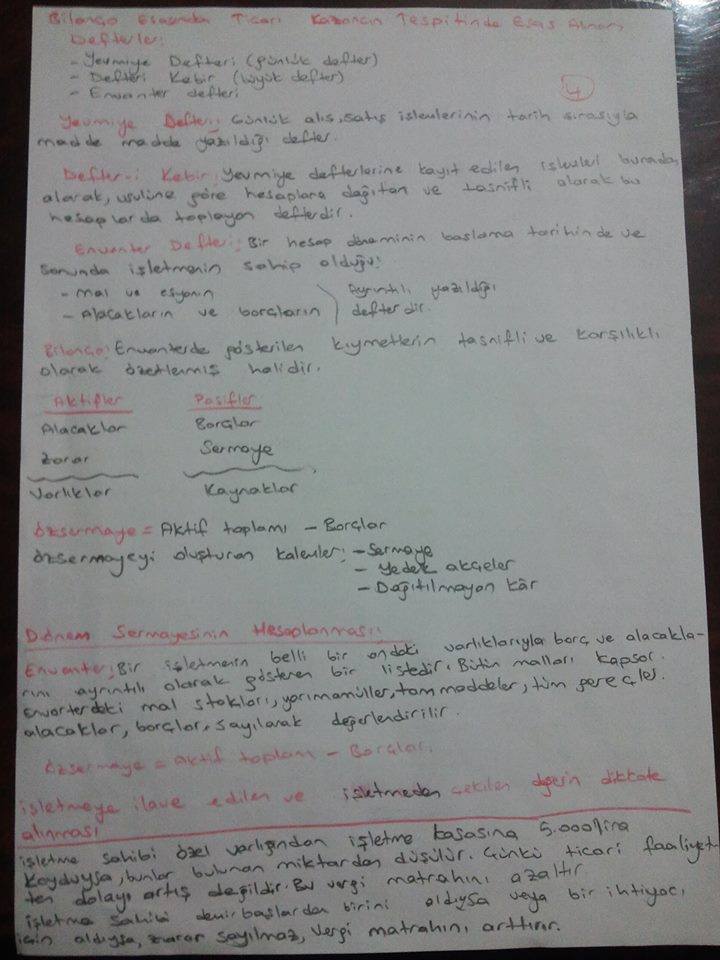 Bilanço Esasında Ticari Kazancın Tespitinde Esas Alınan
Defterler:
- Yevmiye Defteri (günlük defter)
- Defteri Kebir (büyük defter)
- Envanter defteri
4
Yevmiye Defteri: Günlük alış, satış işlemlerinin tarih sırasıyla
madde madde yazıldığı defter.
Defter-i Kebir: Yevmiye defterlerine kayıt edilen işlemleri buradan
alarak, usulüne göre hesaplara dağıtan ve tasnifli olarak bu
hesaplarda toplayan defterdir.
Envanter Defteri: Bir hesap döneminin başlama tarihinde ve
sonunda işletmenin sahip olduğu:
- Mal ve eşyanın
- Alacakların ve borçların
Ayrıntılı yazıldığı
defterdir.
Bilanço: Envanterde gösterilen kıymetlerin tasnifli ve karşılıklı
olarak özetlenmiş halidir.
Aktifler Pasifler
Alacaklar Borçlar
Zarar Sermaye
Varlıklar Kaynaklar
Özsermaye = Aktif toplamı - Borçlar
Özsermayeyi oluşturan kalemler: - Sermaye
- Yedek akçeler
- Dağıtılmayan kâr
Dönem Sermayesinin Hesaplanması:
Envanter; Bir işletmenin belli bir andaki varlıklarıyla borç ve alacakla-
rını ayrıntılı olarak gösteren bir listedir. Bütün malları kapsar.
Envanterdeki mal stokları, yarımamüller, ham maddeler, tüm gereçler.
alacaklar, borçlar, sayılarak değerlendirilir.
Özsermaye = Aktif toplam - Borçlar.
işletmeye ilave edilen ve işletmeden çekilen değerin dikkate
alınması
işletme sahibi özel varlığından işletme kasasına 5.000 lira
koyduysa, bunlar bulunan miktardan düşülür. Çünkü ticari faaliyet-
ten dolayı artış değildir. Bu vergi matrahını azaltır
işletme sahibi demirbaşlardan birini aldıysa veya bir ihtiyacı
için aldıysa, zarar sayılmaz, vergi matrahını arttırır.